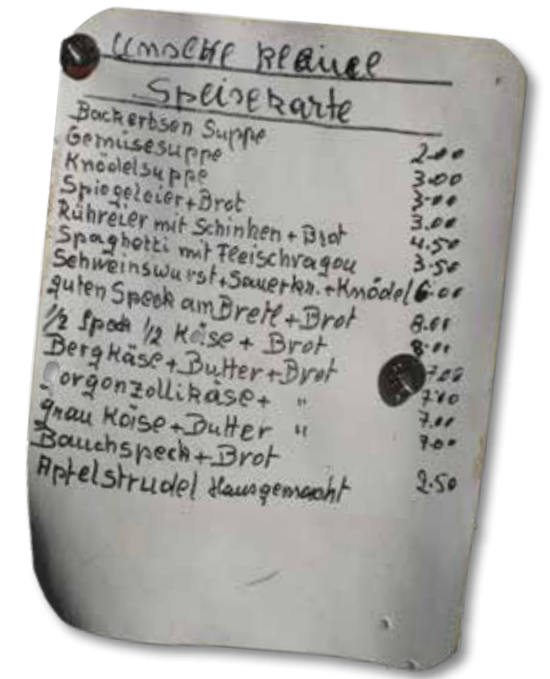 Unsere kleine
Speisekarte
Backerbsen Suppe 2.00
Gemüsesuppe 3.00
Knödelsuppe 3.00
Spiegeleier+Brot 3.00
Rühreier mit Schinken+Brot 4.50
Spaghetti mit Fleischragou 3.50
Schweinswurst+Sauerkr.+Knödel 6.00
guten Speck am Bretl+Brot 8.00
1/2 Speck 1/2 Käse + Brot 8.00
Bergkäse+Butter+Brot 7.00
orgonzollikäse+ " 7.00
grau Käise+Butter " 7.00
Bauchspeck+Brot 7.00
Apfelstrudel Hausgemacht 2.50